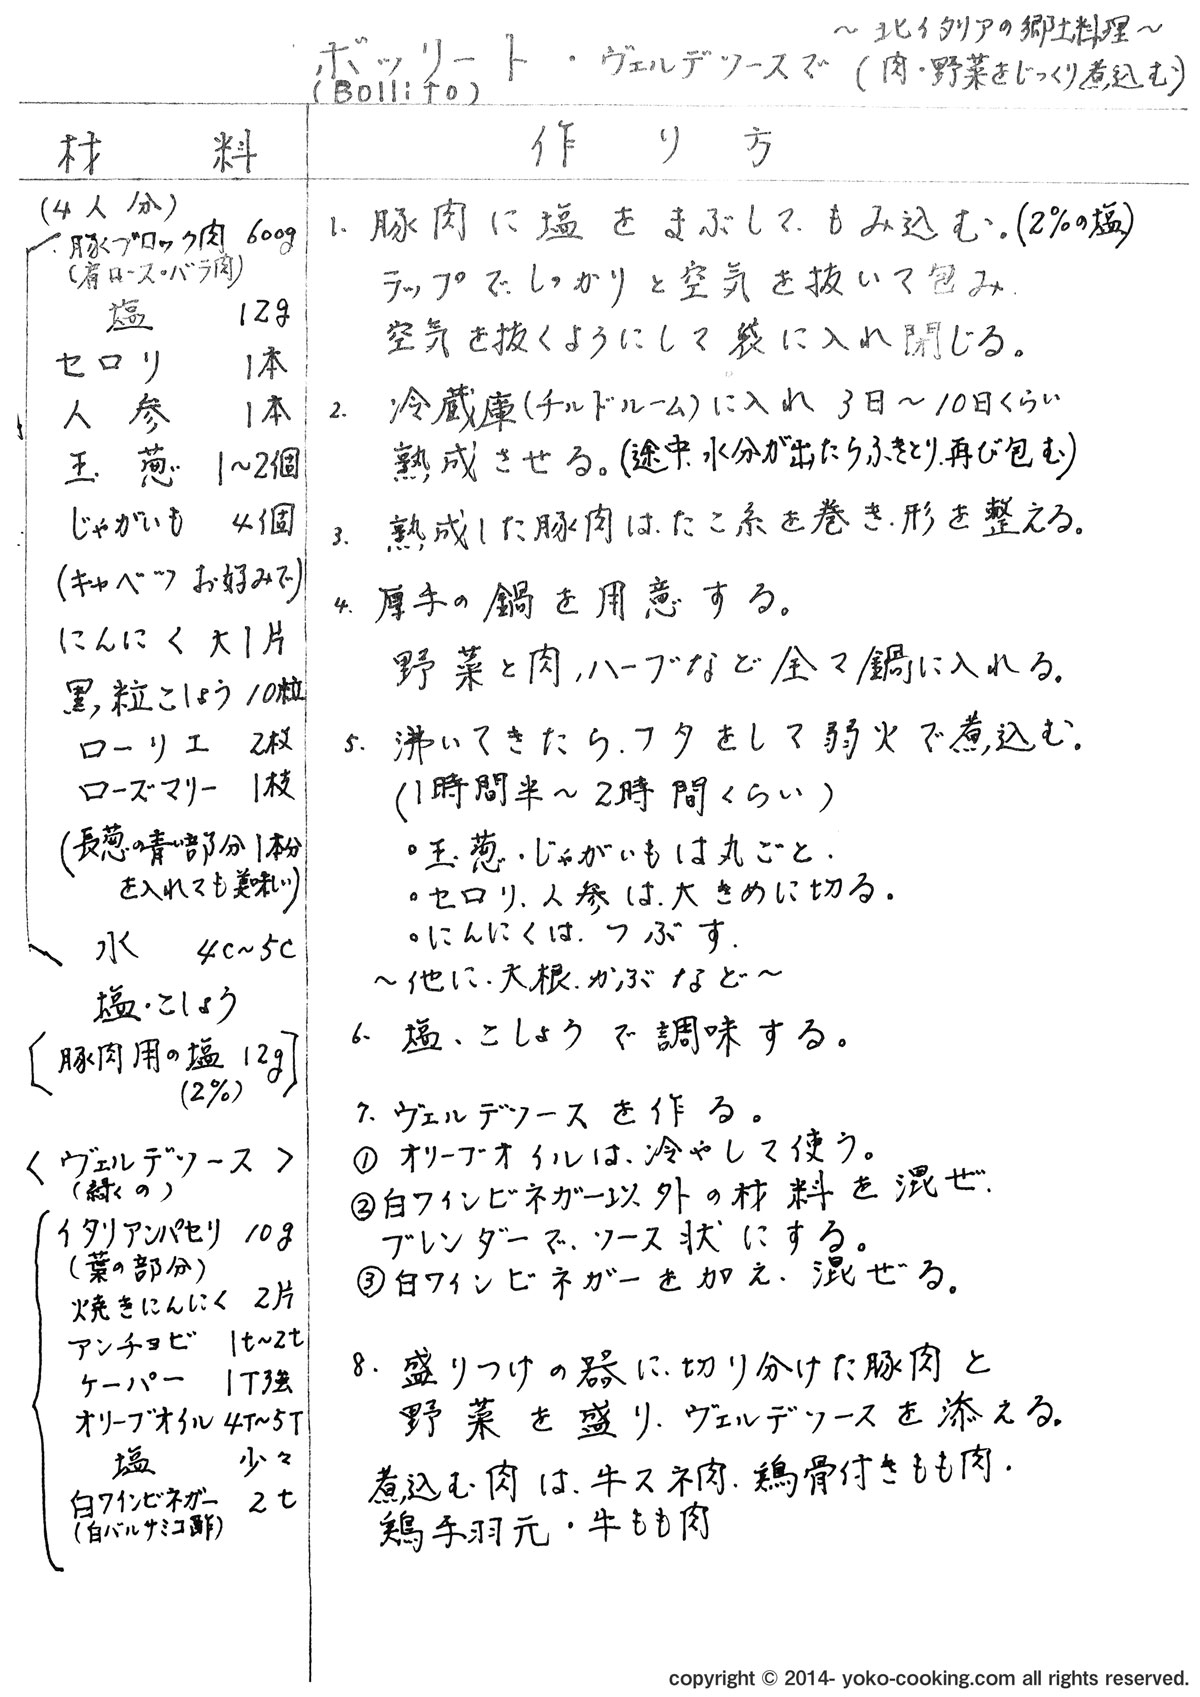 ～北イタリアの郷土料理～
ボッリート・ヴェルデソースで (肉・野菜をじっくり煮込む)
(Bollito)
材料
作り方
(4人分)
・豚ブロック肉 600g
(肩ロース・バラ肉)
塩 12g
セロリ 1本
人参 1本
玉葱 1～2個
じゃがいも 4個
(キャベツ お好みで)
にんにく 大1片
黒粒こしょう 10粒
ローリエ 2枚
ローズマリー 1枝
(長葱の青い部分1本分
を入れても美味しい)
水 4c～5c
塩・こしょう
[豚肉用の塩 12g]
(2%)
<ヴェルデソース>
(緑の)
イタリアンパセリ 10g
(葉の部分)
焼きにんにく 2片
アンチョビ 1t～2t
ケーパー 1T強
オリーブオイル 4T～5T
塩 少々
白ワインビネガー 2t
(白バルサミコ酢)
1. 豚肉に塩をまぶして、もみ込む。(2%の塩)
ラップで、しっかりと空気を抜いて包み、
空気を抜くようにして袋に入れ閉じる。
2. 冷蔵庫(チルドルーム)に入れ 3日～10日くらい
熟成させる。(途中、水分が出たらふきとり、再び包む)
3. 熟成した豚肉は、たこ糸を巻き、形を整える。
4. 厚手の鍋を用意する。
野菜と肉、ハーブなど全て鍋に入れる。
5. 沸いてきたら、フタをして弱火で煮込む。
(1時間半～2時間くらい)
・玉葱・じゃがいもは丸ごと、
・セロリ、人参は、大きめに切る。
・にんにくは、つぶす、
～他に、大根、かぶなど～
6. 塩、こしょうで調味する。
7. ヴェルデソースを作る。
① オリーブオイルは、冷やして使う。
②白ワインビネガー以外の材料を混ぜ、
ブレンダーで、ソース状にする。
③白ワインビネガーを加え、混ぜる。
8. 盛りつけの器に、切り分けた豚肉と
野菜を盛り、ヴェルデソースを添える。
煮込む肉は、牛スネ肉、鶏骨付きもも肉、
鶏手羽元・牛もも肉
copyright © 2014- yoko-cooking.com all rights reserved.